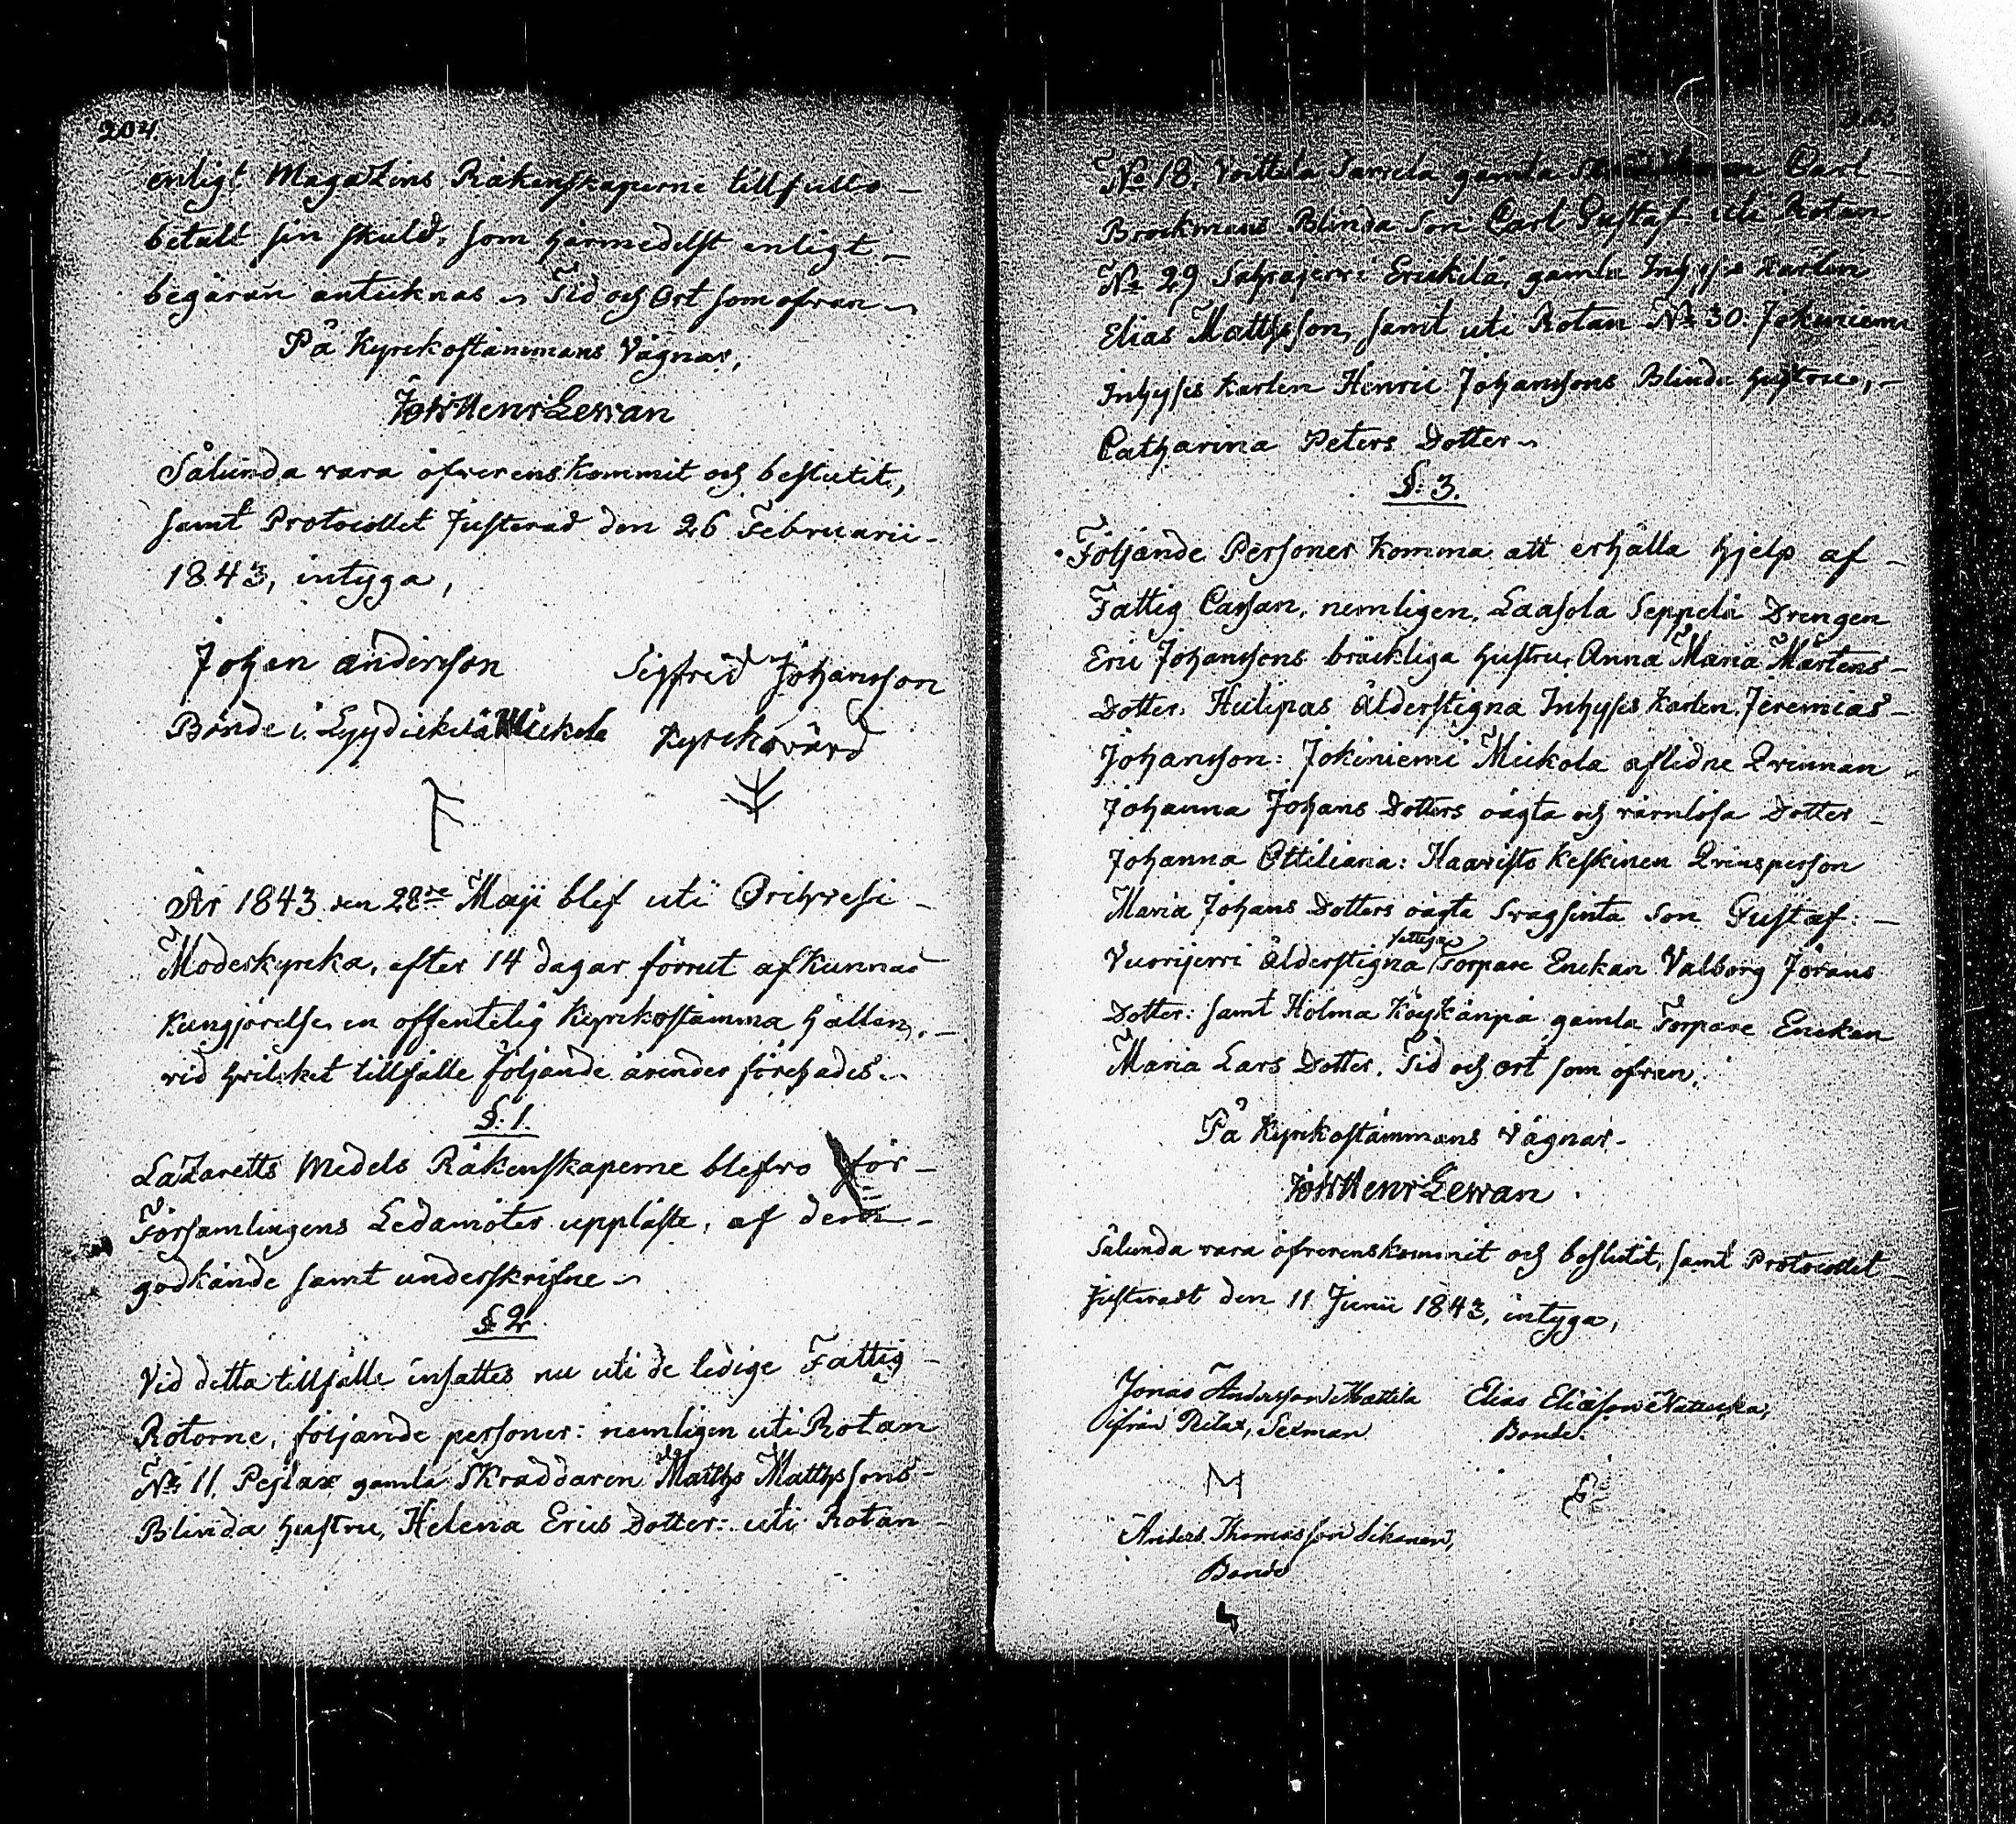 204
enligt Magazins Räkenskaperne tillfullo
betalt sin skuld, som härmedelst enligt
begäran anteknas. Tid och Ort som ofvan
På Kyrckostämmans Vägnar,
Joh Henr Levan
Sålunda vara öfverenskommit och beslutit,
samt Protocollet Justerad den 26 Februarii
1843, intyga,
Johan Andersson Sigfrid Johansson
Bonde i Lyydickilä Mickola Kyrckovärd
År 1843 den 28de Maji blef uti Orihvesi
Moderkyrcka, efter 14 dagar förrut afkunnad
Kungjörelse, en offentelig Kyrckostämma hållen,
vid hvilcket tillfälle följande ärender förehades.
§: 1.
Lazaretts Medels Räkenskaperne blefvo för
Församlingens Ledamöter uppläste, af dem
godkände samt underskrifne
§ 2
Vid detta tillfälle insattes nu uti de ledige Fattig
Rotorne, följande personer: nemligen uti Rotan
No 11. Pejlax gamla Skräddaren Matths Matthssons
Blinda hustru, Helena Erics Dotter: uti Rotan
No 18. Voittila gamla Carl
Brockmans Blinda Son Carl Gustaf uti Rotan
No 29 Sahrajervi Erickilä, gamla Inhyses Karlen
Elias Mattsson, samt uti Rotan No 30. Jokiniemi
Inhyses Karlen Henric Johanssons Blinda hustru,
Catharina Peters Dotter
§: 3.
Följande Personer komma att erhålla hjelp af
Fattig Cassan, nemligen, Laasola Seppelä Drengen
Eric Johanssons bräckliga hustru Anna Maria Mårtens
Dotter: Hulipas Ålderstigna Inhyses Karlen Jeremias
Johansson: Jokiniemi Mickola aflidne Qvinnan
Johanna Johans Dotters oägta och värnlösa Dotter
Johanna Ottiliana: Haavisto Keskinen Qvinsperson
Maria Johans Dotters oägta svagsinta Son Gustaf:
Vuorijervi Ålderstigna fattiga Torpare Enckan Valborg Jörans
Dotter: samt Holma Köykänpä gamla Torpare Enckan
Maria Lars Dotter. Tid och ort som ofvan.
På Kyrckostämmans Vägnar.
Joh Henr Levan
Sålunda vara öfverenskommit och beslutit, samt Protocollet
Justeradt den 11 Junii 1843, intyga,
Jonas Andersson Mattila Elias Eliasson
ifrån Sexman Bonde.
Anders Thomasson
Bonde